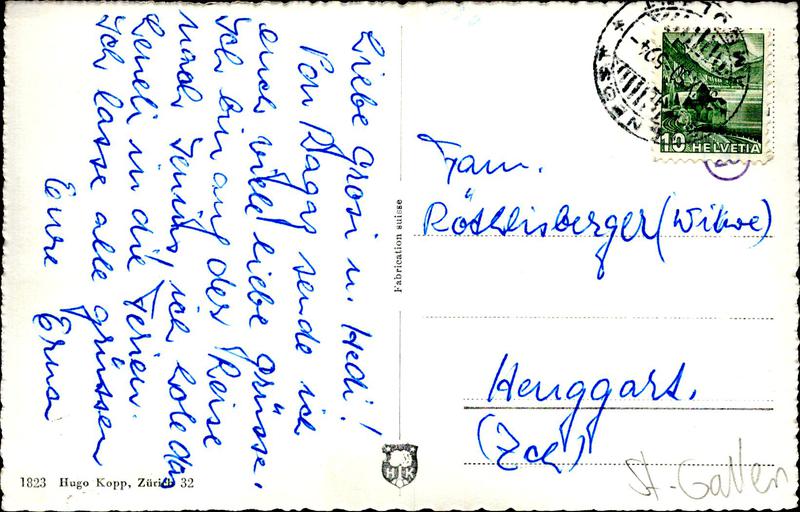 Liebe Grosi u. Hedi!
Von Ragaz sende ich
euch viele liebe Grüsse.
Ich bin auf der Reise
nach Jenins, ich hole das
Leneli in die Ferien.
Ich lasse alle grüssen
Eure Erna
Fabrication suisse
1823 Hugo Kopp, Zürich 32
HK
10 HELVETIA
Fam.
Röthlisberger (Witwe)
Henggart.
(Zch)
St. Gallen